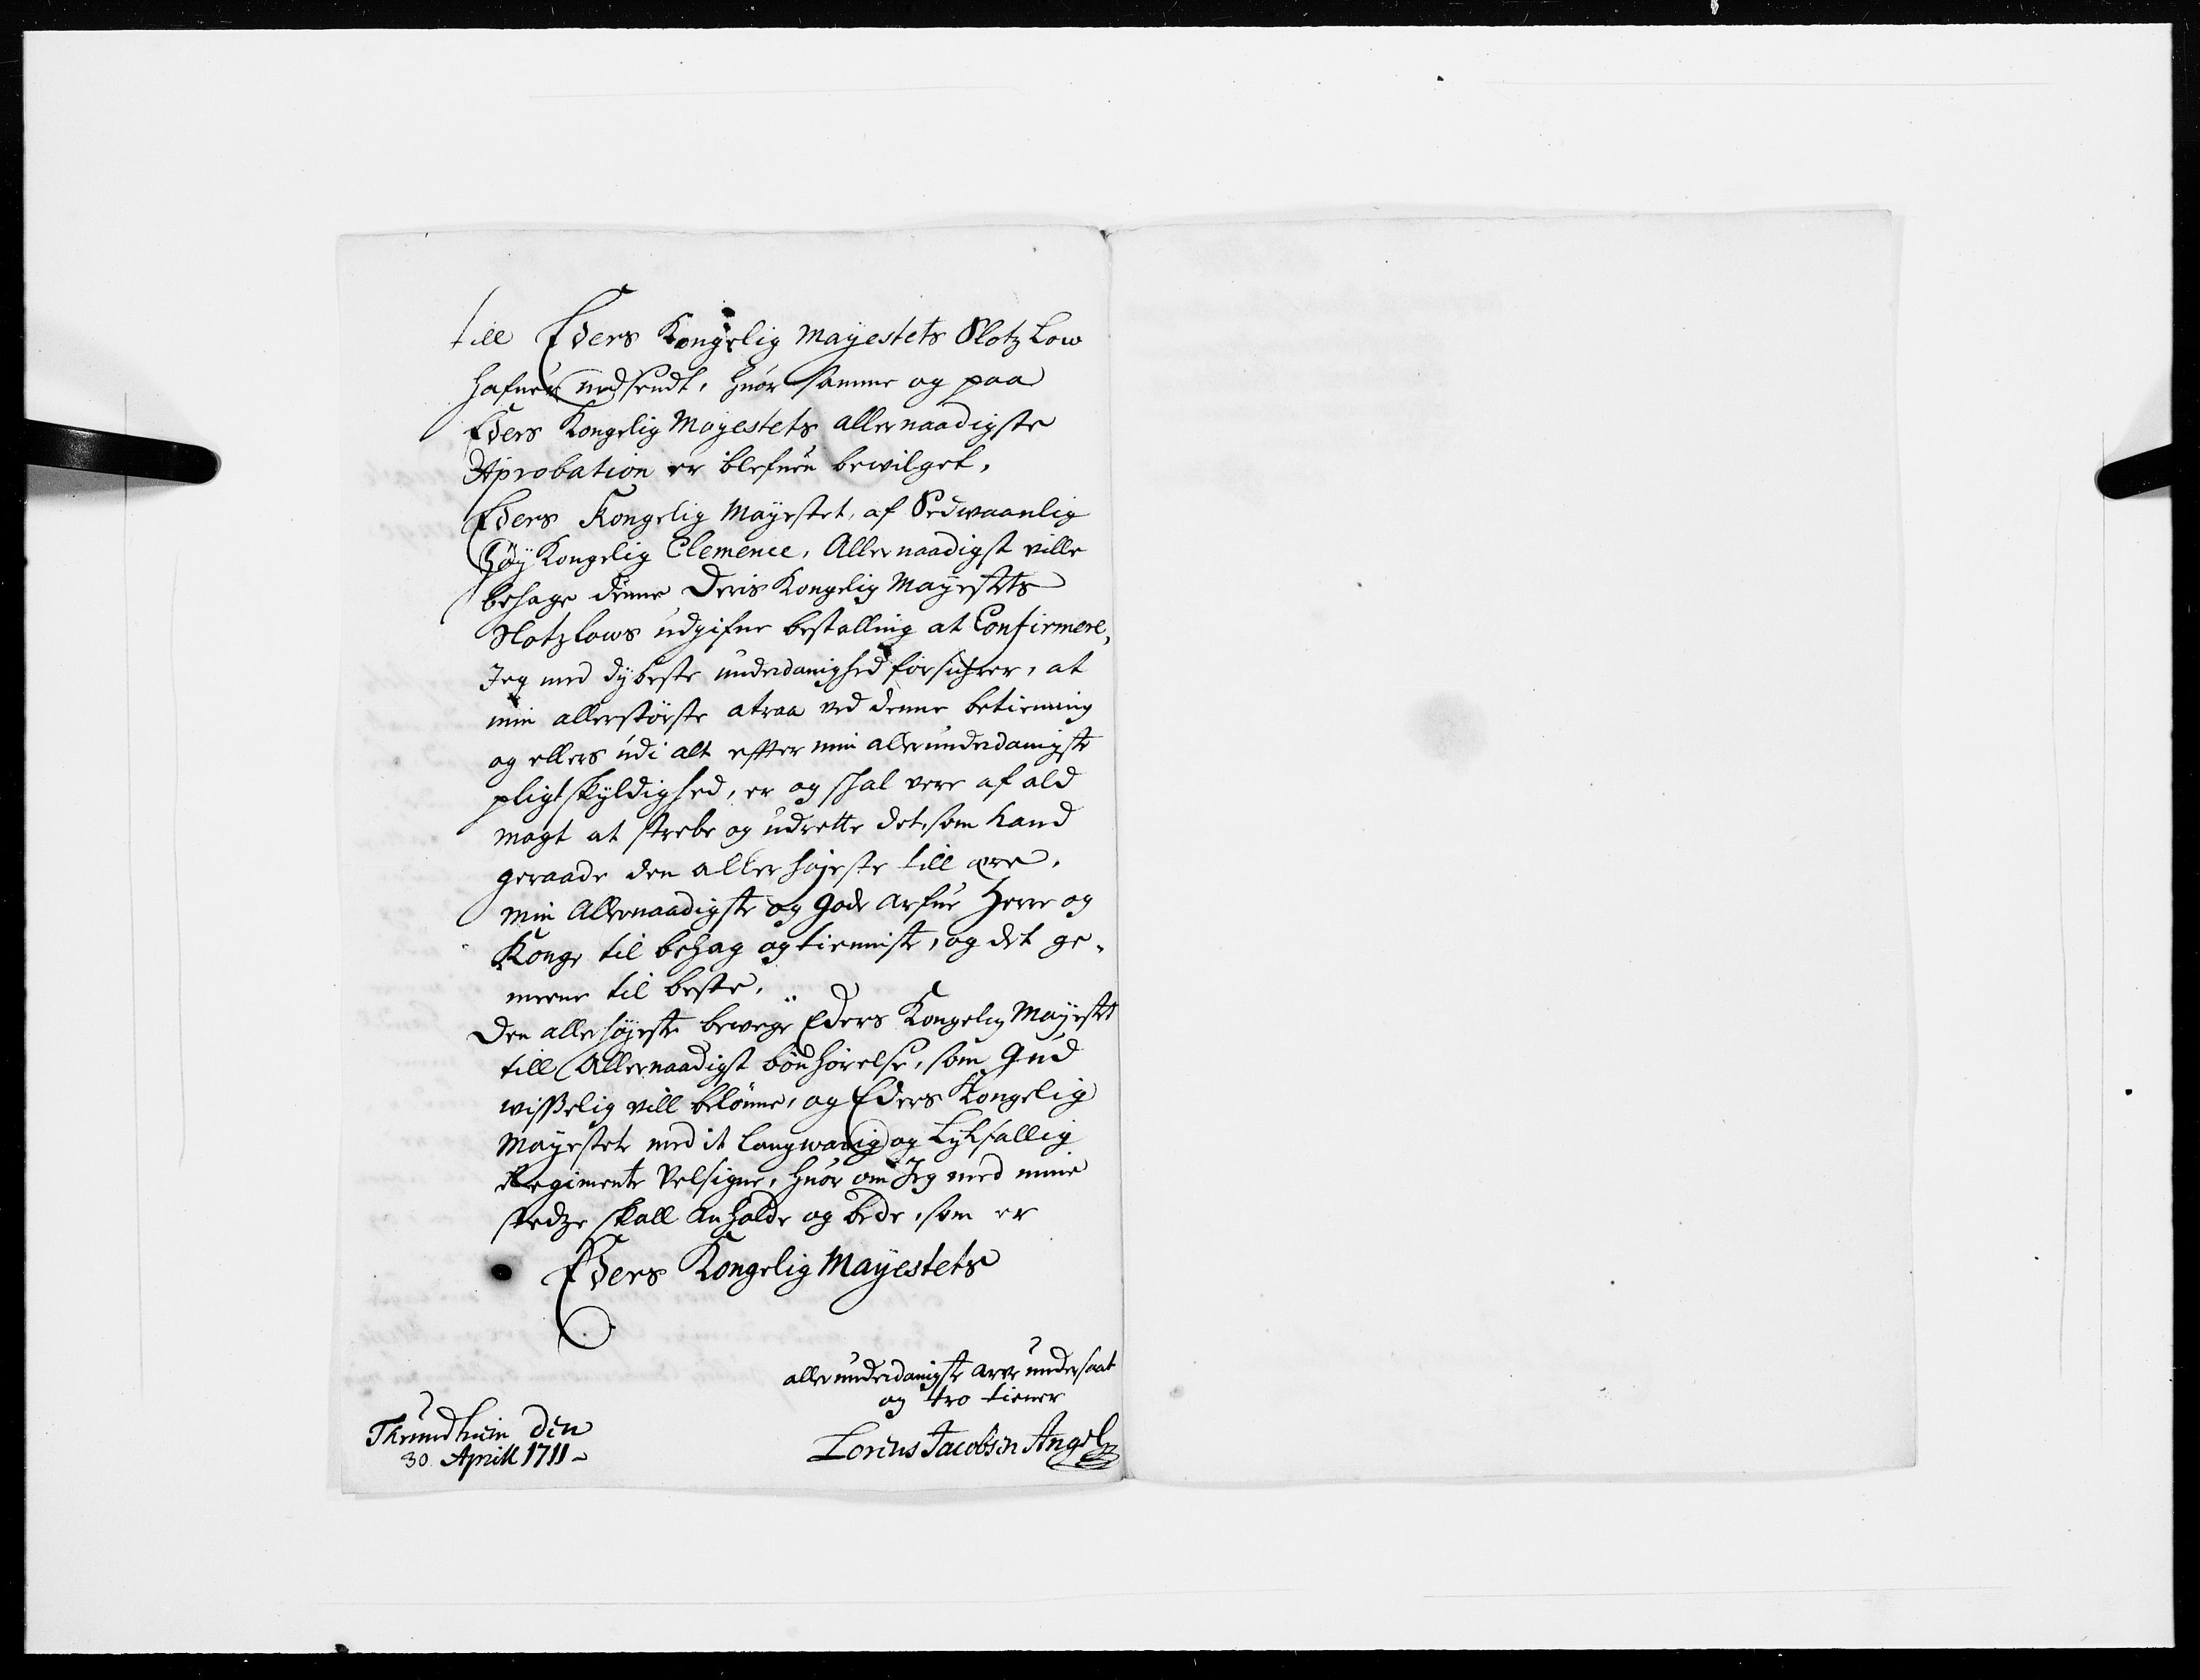 till Eders Kongelig Mayestets Slotz Low
hafuer nedsendt, huor samme og paa
Eders Kongelig Mayestets allernaadigste
Aprobation er blefuen bewilget,
Eders Kongelig Mayestet, af Sedwaanlig
Høy Kongelig Clemence, Allernaadigst ville
behage denne Deris Kongelig Mayestets
Slotzlows udgifne bestalling at Confirmere,
Jeg med dybeste underdanighed forsichrer, at
min allerstørste atraa ved denne betienning
og ellers udi alt effter min allerunderdanigste
pligtskyldighed, er og skal vere af ald
magt at strebe og udrette det, som kand
geraade den allerhøjeste till ære,
min Allernaadigste og gode arfue Herre og
Konge til behag og tienniste, og det ge-
meene til beste,
Den allerhøjeste bewege Eders Kongelig Mayestet
till Allernaadigst bønhørelse, som Gud
wisselig vill belønne, og Eders Kongelig
Mayestet med it langwarig og Lyksallig
Regimente Velsigne, huor om Jeg med mine
stedze skall anholde og bede, som er
Eders Kongelig Mayestets
allerunderdanigste arve undersaat
og tro tiener
Thrundhiem den
30 Aprill 1711
Lorens Jacobsen Angel